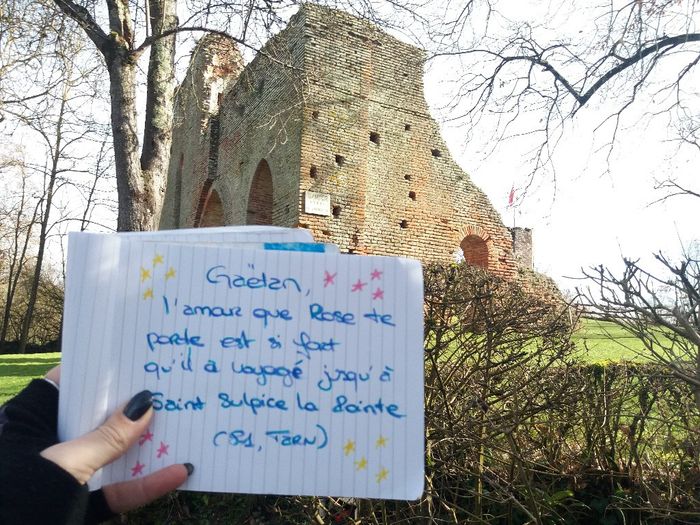 Gaëtan,
l'amour que Rose te
porte est si fort
qu'il à voyagé jusqu'à
Saint Sulpice la Pointe
(81, TARN)